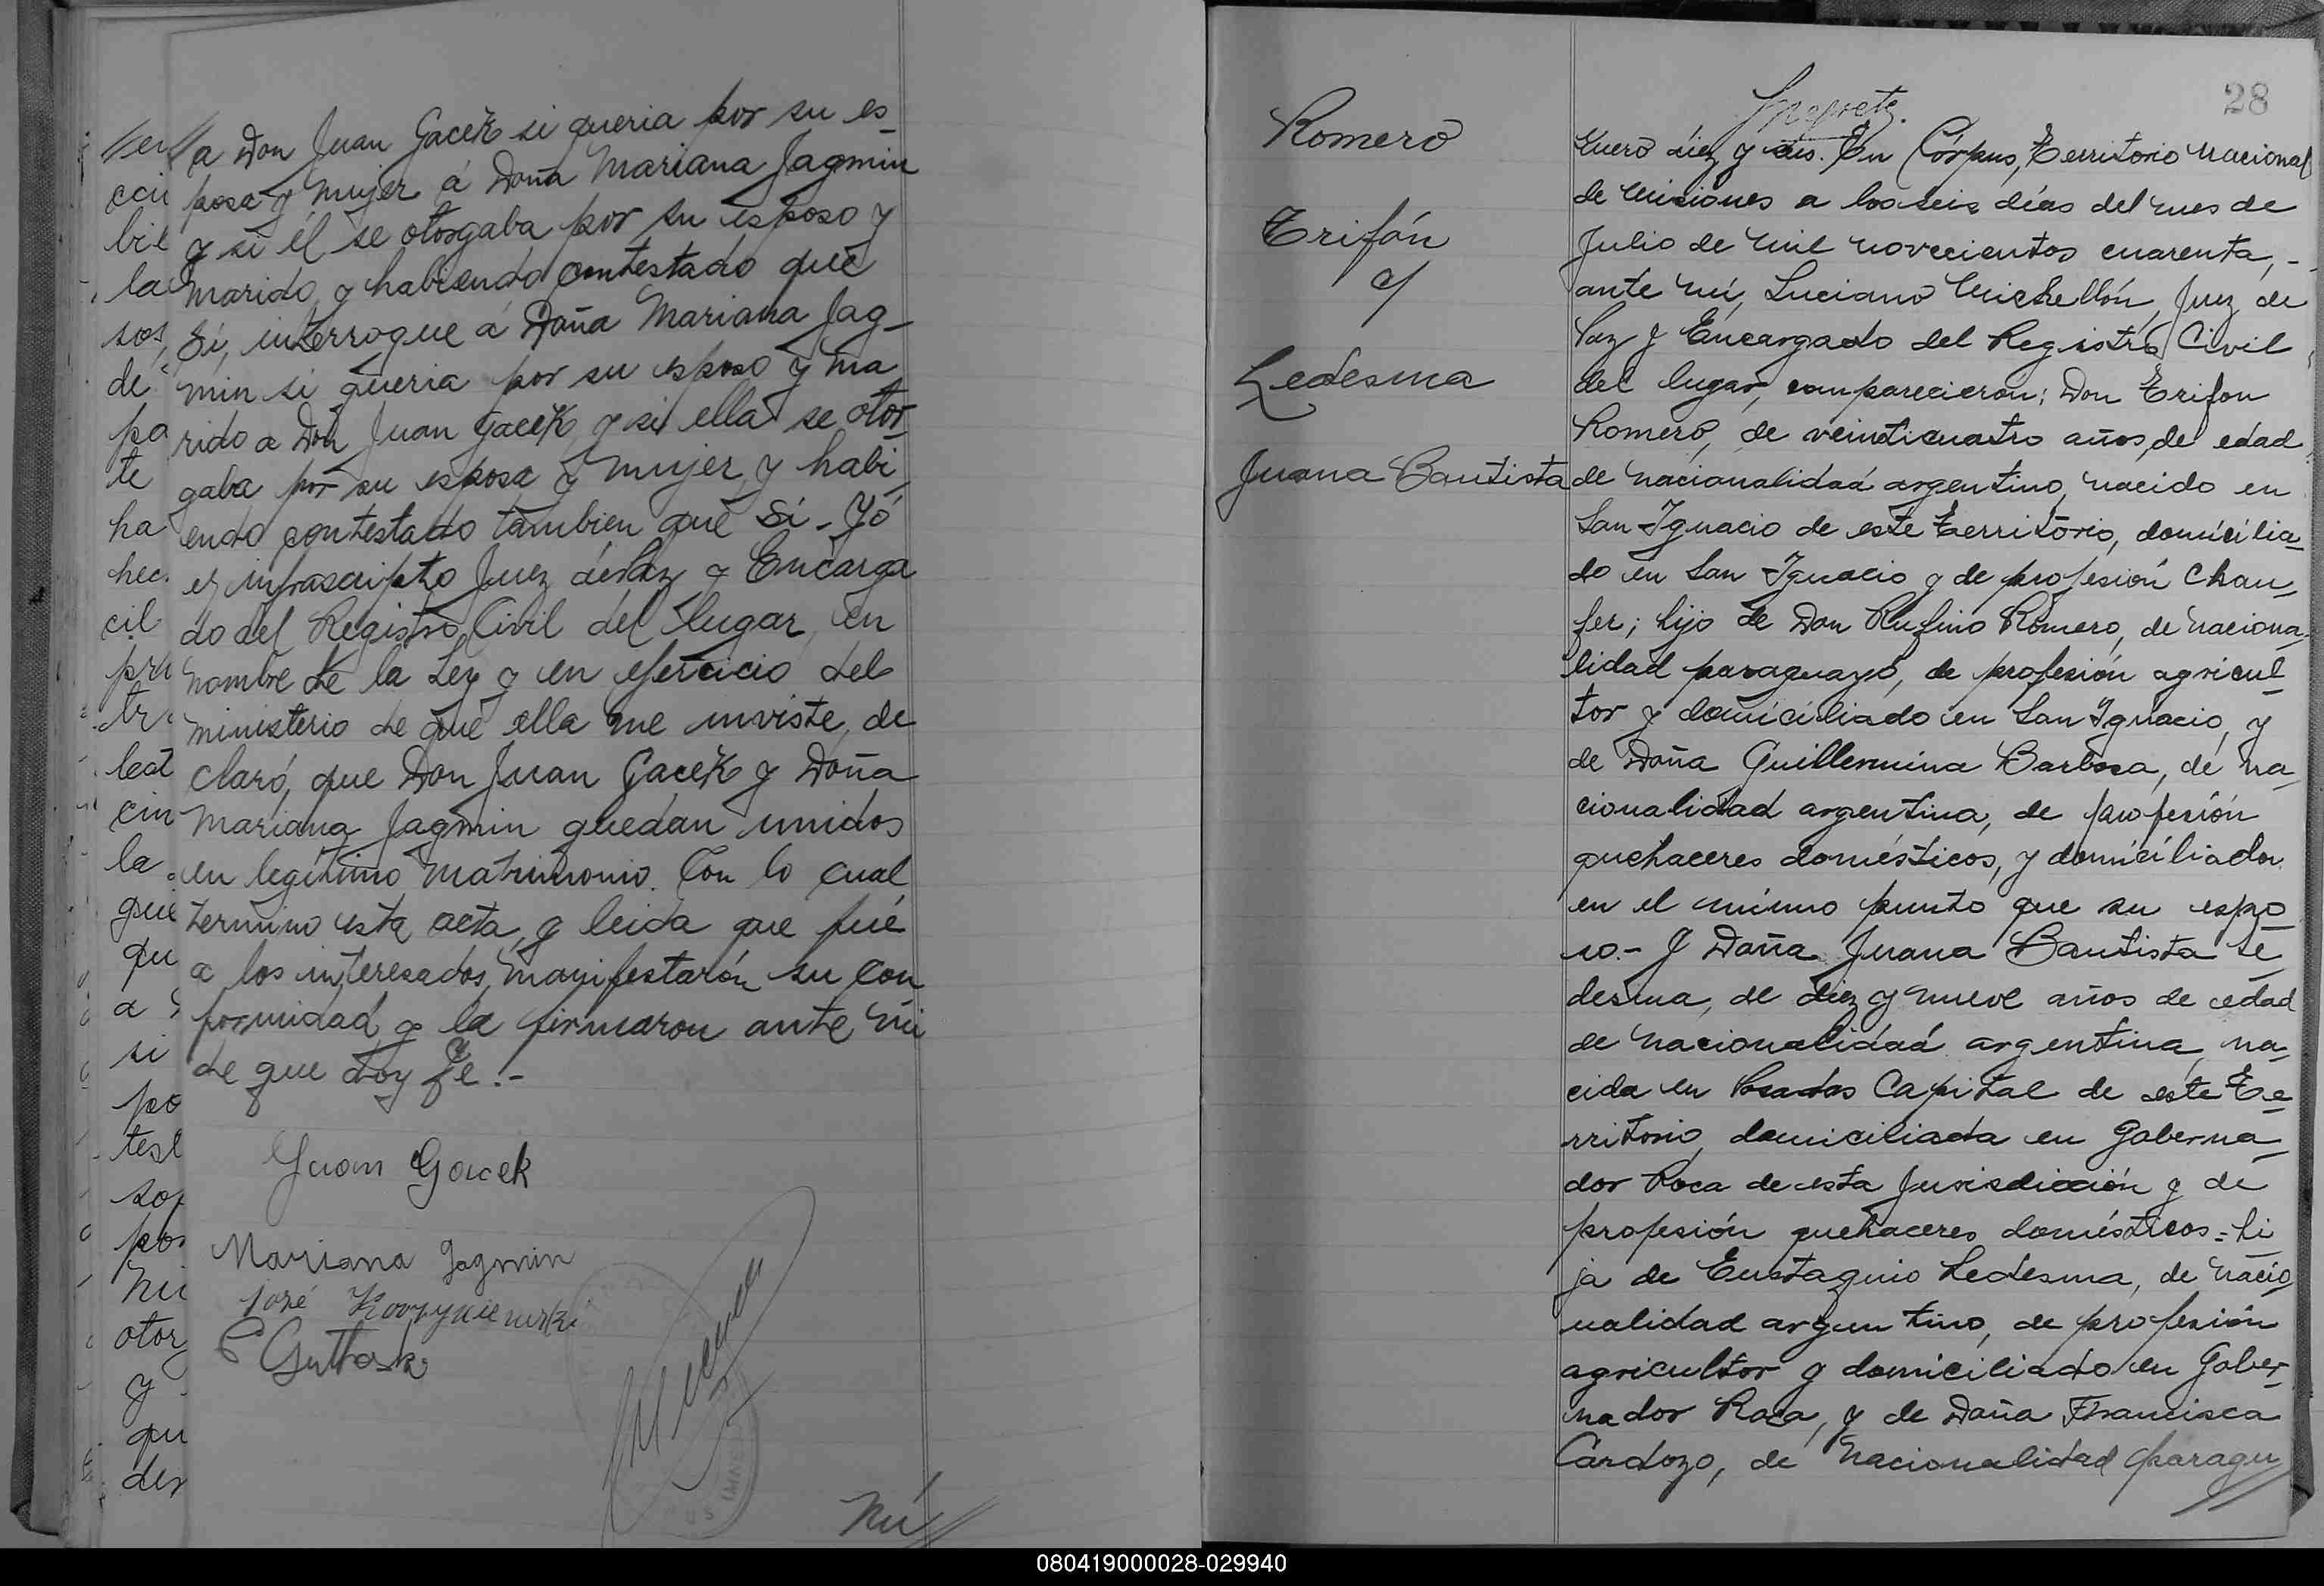 a Don Juan Gacek si queria por su es_
posa y mujer á Doña Mariana Jagmin
y si él se otorgaba por su esposo y
marido, y habiendo contestado que
Sí, interrogue á Doña Mariana Jag_
min si queria por su esposo y ma_
rido a Don Juan Gacek y si ella se otor_
gaba por su esposa y mujer, y habi_
endo contestado tambien que Si - Yó
el infrascripto Juez de Paz y Encarga
do del Registro Civil del lugar, en
nombre de la Ley y en ejercicio del
ministerio de que ella me inviste, de
claró, que Don Juan Gacek y Doña
Mariana Jagmin quedan unidos
en legítimo matrimonio. Con lo cual
termino esta acta, y leida que fué
a los interesados, manifestarón su con
formidad y la firmaron ante mi
de que doy fé.-
Juan Gacek
Mariana Jagmin
José
Nú
cci
bre
la
sos,
de
pa
te
ha
hec.
cil
pri
tr
leat
cin
la
que
qu
a
si
po
test
sop
por
Nu
otor
y
qu
der
28
Romero
Trifón
c/
Ledesma
Juana Bautista
mero diez y seis. En Córpus, Territorio Nacional
de Misiones a los seis días del mes de
Julio de mil novecientos cuarenta, -
ante mí, Luciano Michellón, Juez de
Paz y Encargado del Registro Civil
del lugar, comparecieron; Don Trifon
Romero, de veinticuatro años, de edad
de nacionalidad argentino, nacido en
San Ignacio de este Territorio, domicilia_
do en San Ignacio y de profesión Chau_
fer; hijo de Don Rufino Romero, de naciona_
lidad paraguayo, de profesión agricul_
tor y domiciliado en San Ignacio, y
de Doña Guillermina Barboza, de na_
cionalidad argentina, de profesión
quehaceres domésticos, y domiciliada
en el mismo punto que su espo_
so.- Y Doña Juana Bautista Le_
desma, de diez y nueve años de edad
de nacionalidad argentina, na_
cida en Posadas Capital de este Te_
rritorio, domiciliada en Goberna_
dor Roca de esta Jurisdicción y de
profesión quehaceres domésticos = hi_
ja de Eustaquio Ledesma, de nacio_
nalidad argentino, de profesión
agricultor y domiciliado en Gober_
nador Roca, y de Doña Francisca
Cardozo, de nacionalidad paragu
080419000028-029940